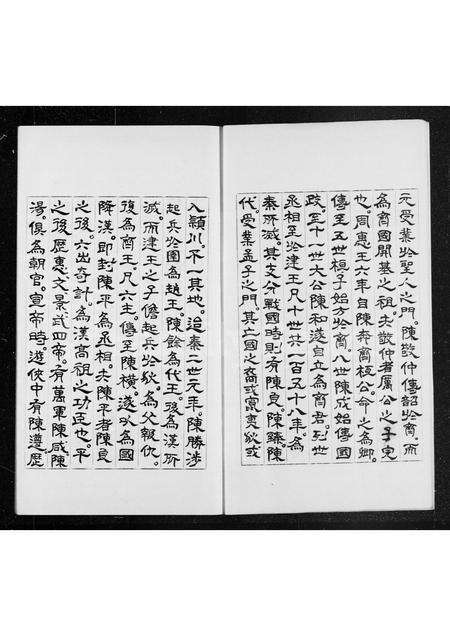 元受業於聖人之門。陳敬仲傳韶於齊。而
為齊國開基之祖。夫敬仲者厲公之子完
也。周惠王六年自陳奔齊桓公。命之為卿。
傳至五世桓子始方於齊八世陳成始傳國
政。至十一世大公陳和遂自立為齊君。到世
丞相至於建王凡十世共一百五十八年。為
秦所滅。其支分戰國時則有陳良。陳臻。陳
代。受業孟子之門。其立國之裔或寓夷狄或
入潁川。不一其地。迨秦二世元年。陳勝涉
起兵於圉為趙王。陳餘為代王。後為漢所
滅。而建王之子儋起兵於狄。為父報仇。
後為齊王凡六主。傳至陳橫。遂以為國
降漢即封陳平為丞相夫陳平者陳良
之後。六出奇計。為漢高祖之功臣也。平
之後歷惠文景武四帝。有萬軍陳咸陳
湯。俱為朝官。宣帝時。遊俠中有陳遵歷